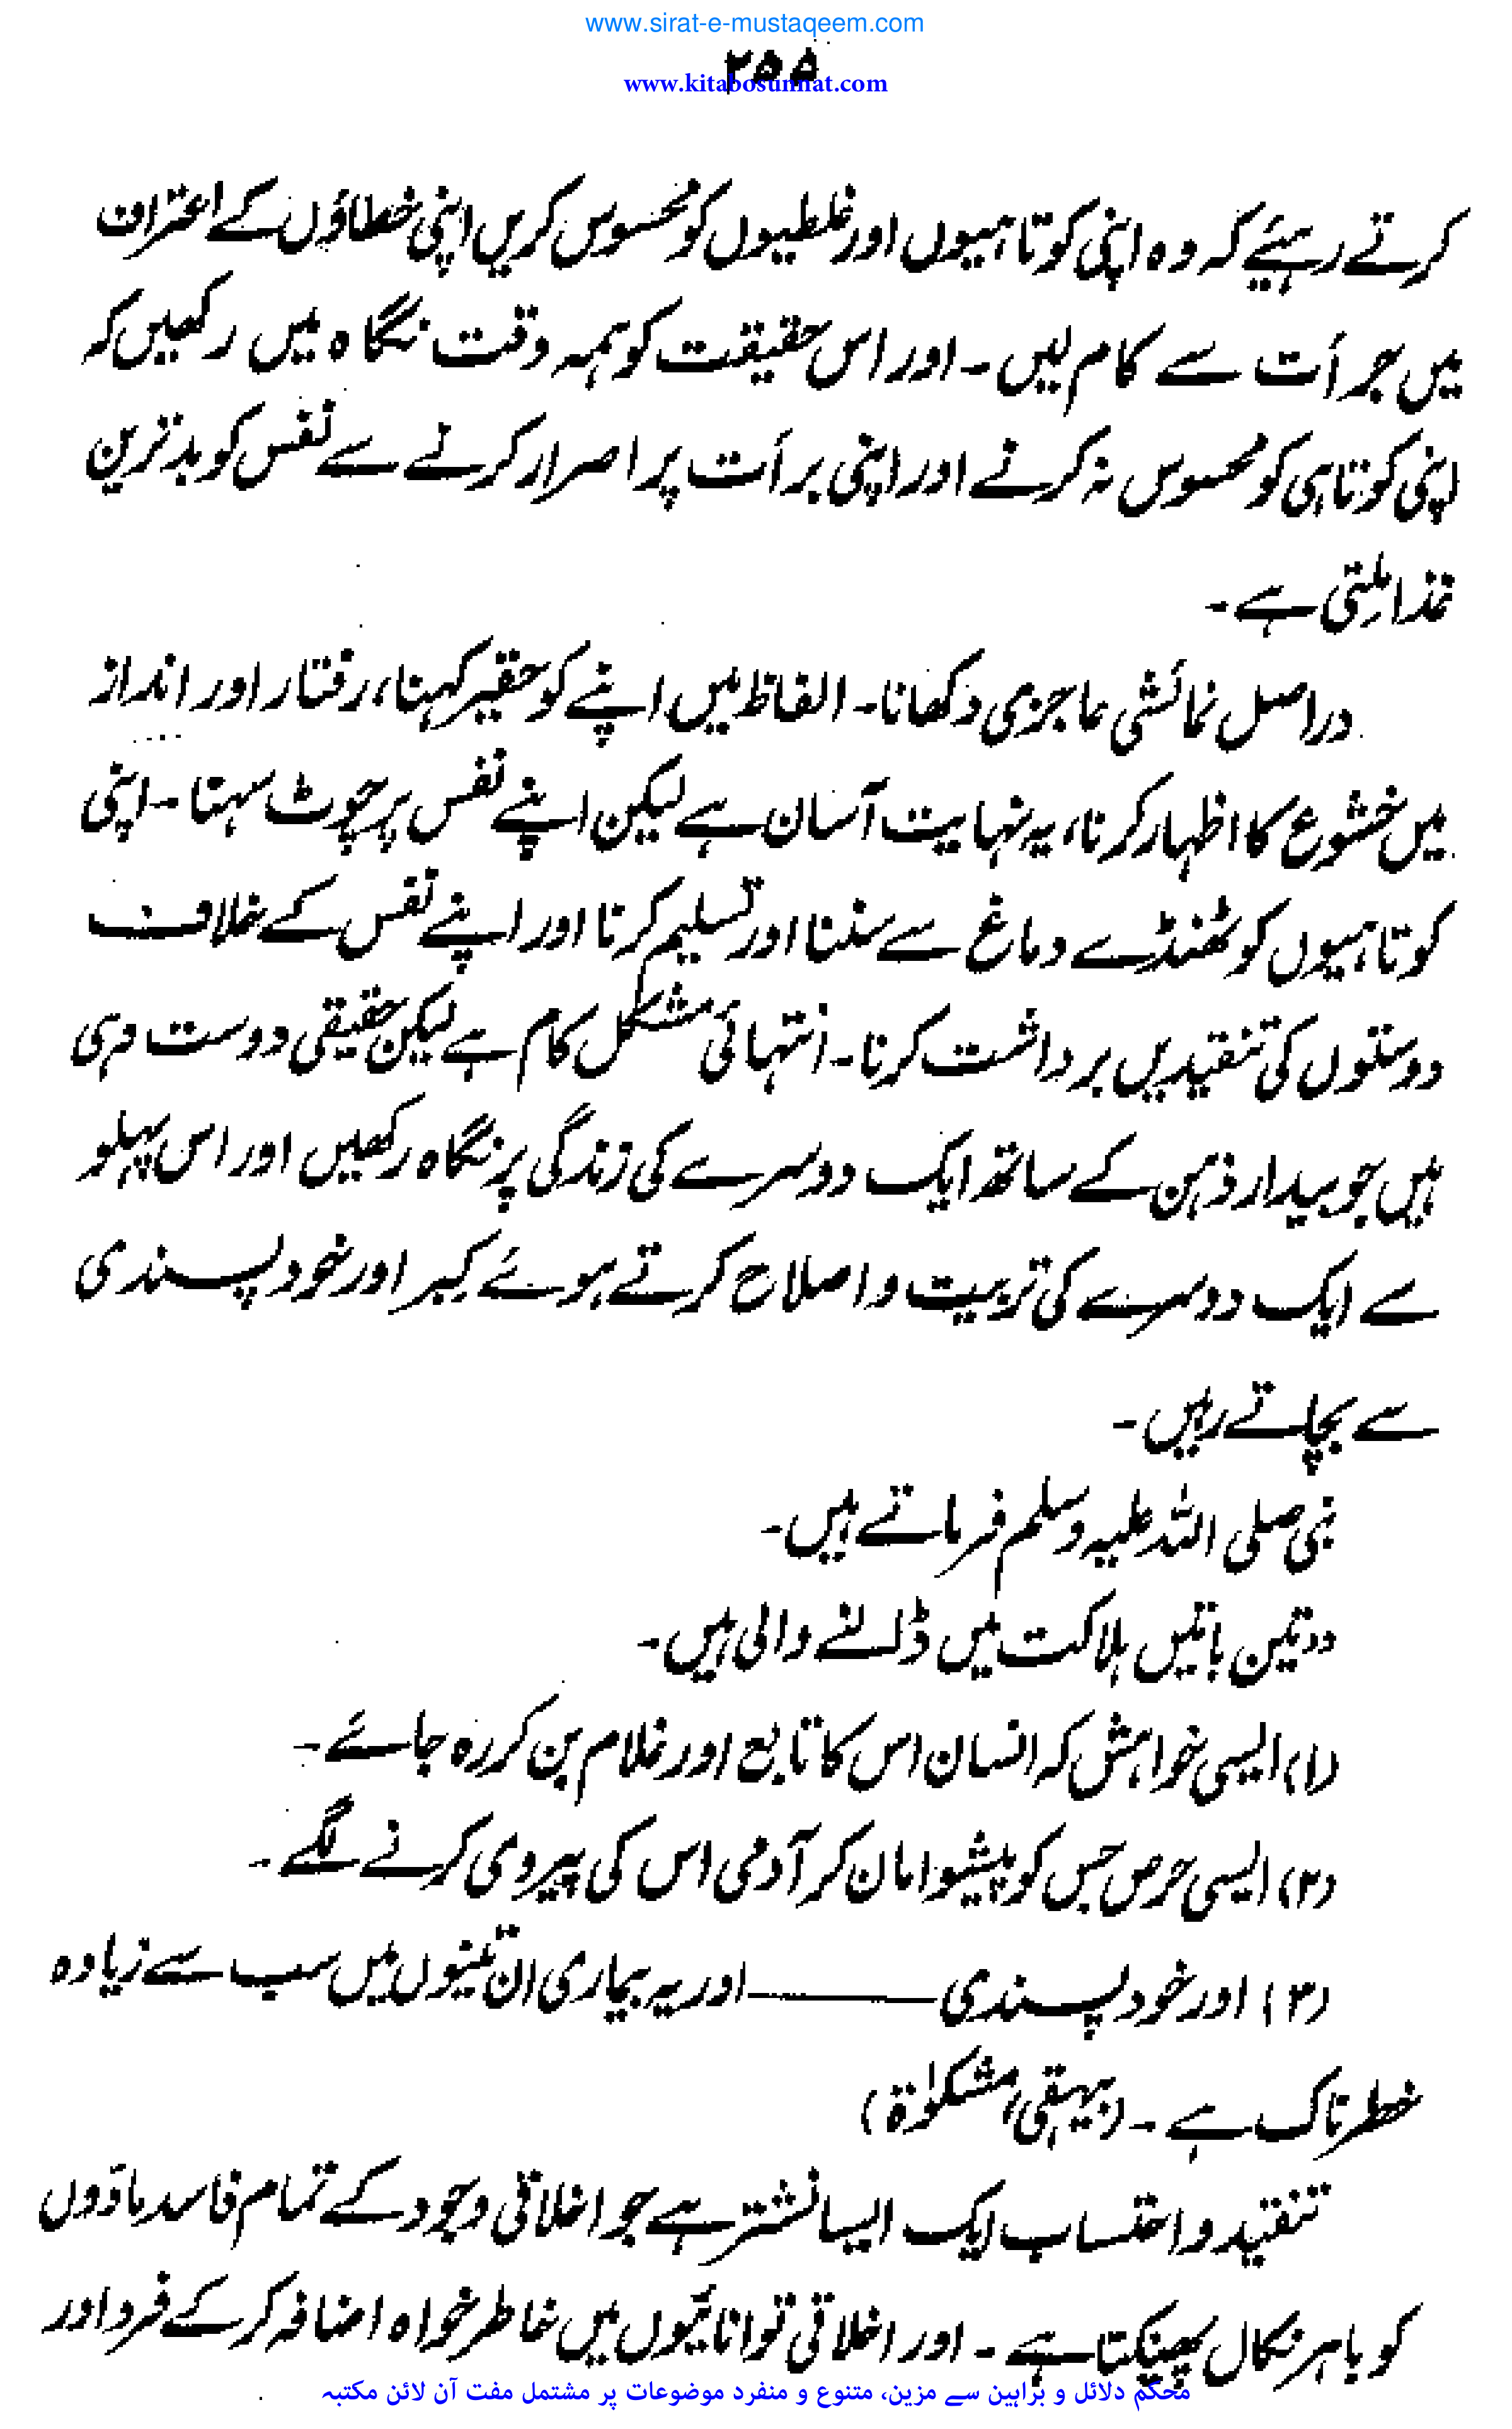 www.sirat-e-mustaqeem.com
۲۵۵
www.kitabosunnat.com
کرتے رہیئے کہ وہ اپنی کوتاہیوں اور غلطیوں کو محسوس کریں اپنی خطاؤں کے اعتراف
میں جرأت سے کام لیں ۔ اور اس حقیقت کو ہمہ وقت نگاہ میں رکھیں کہ
اپنی کوتاہی کو محسوس نہ کرنے اور اپنی برأت پر اصرار کرنے سے نفس کو بدترین
غذا ملتی ہے ۔
دراصل نمائشی عاجزی دکھانا۔ الفاظ میں اپنے کو حقیر کہنا، رفتار اور انداز
میں خشوع کا اظہار کرنا، یہ نہایت آسان ہے لیکن اپنے نفس پر چوٹ سہنا ۔ اپنی
کوتاہیوں کو ٹھنڈے دماغ سے سننا اور تسلیم کرنا اور اپنے نفس کے خلاف
دوستوں کی تنقیدیں برداشت کرنا ۔ انتہائی مشکل کام ہے لیکن حقیقی دوست وہی
ہیں جو بیدار ذہن کے ساتھ ایک دوسرے کی زندگی پر نگاہ رکھیں اور اس پہلو
سے ایک دوسرے کی تربیت و اصلاح کرتے ہوئے کِبر اور خود پسندی
سے بچاتے رہیں ۔
نبی صلی اللہ علیہ وسلم فرماتے ہیں ۔
”تین باتیں ہلاکت میں ڈالنے والی ہیں ۔
(۱) ایسی خواہش کہ انسان اس کا تابع اور غلام بن کر رہ جائے ۔
(۲) ایسی حرص جس کو پیشوا مان کر آدمی اس کی پیروی کرنے لگے ۔
(۳) اور خود پسندی ـــــــــ اور یہ بیماری ان تینوں میں سب سے زیادہ
خطرناک ہے ۔ (بیہقی، مشکوٰۃ)
تنقید و احتساب ایک ایسا نشتر ہے جو اخلاقی وجود کے تمام فاسد مادّوں
کو باہر نکال پھینکتا ہے ۔ اور اخلاقی توانائیوں میں خاطر خواہ اضافہ کر کے فرد اور
محکم دلائل و براہین سے مزین، متنوع و منفرد موضوعات پر مشتمل مفت آن لائن مکتبہ